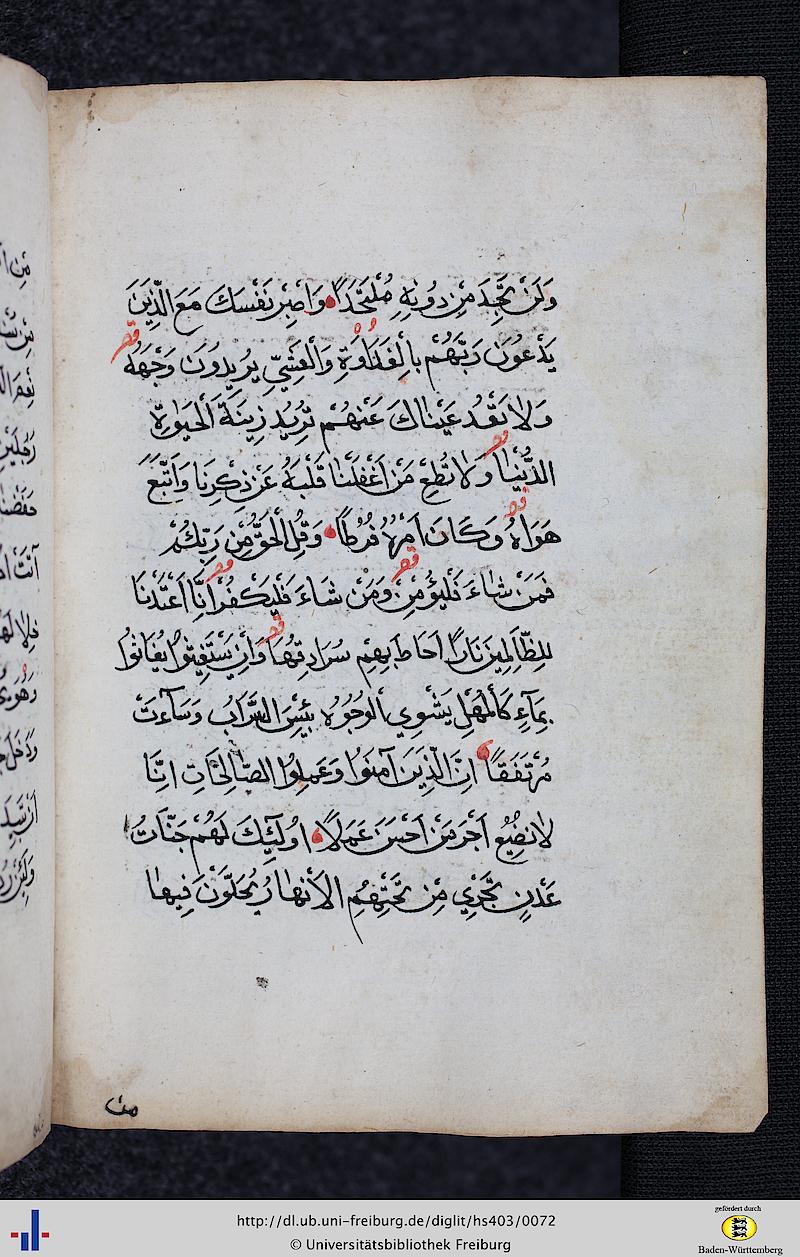 وَلَنْ تَجِدَ مِنْ دُونِهِ مُلْتَحَدًا وَاصْبِرْ نَفْسَكَ مَعَ الَّذِينَ
يَدْعُونَ رَبَّهُمْ بِالْغَدَاوَةِ وَالْعَشِيِّ يُرِيدُونَ وَجْهَهُ
وَلَا تَعْدُ عَيْنَاكَ عَنْهُمْ تُرِيدُ زِينَةَ الْحَيَوةِ
الدُّنْيَا وَلَا تُطِعْ مَنْ اَغْفَلْنَا قَلْبَهُ عَنْ ذِكْرِنَا وَاتَّبَعَ
هَوَاهُ وَكَانَ اَمْرُهُ فُرُطًا وَقُلِ الْحَقُّ مِنْ رَبِّكُمْ
فَمَنْ شَاءَ فَلْيُؤْمِنْ وَمَنْ شَاءَ فَلْيَكْفُرْ اِنَّا اَعْتَدْنَا
لِلظَّالِمِينَ نَارًا اَحَاطَ بِهِمْ سُرَادِقُهَا وَاِنْ يَسْتَغِيثُوا يُغَاثُوا
بِمَآءٍ كَالْمُهْلِ يَشْوِي الْوُجُوهَ بِئْسَ الشَّرَابُ وَسَآءَتْ
مُرْتَفَقًا اِنَّ الَّذِينَ آمَنُوا وَعَمِلُوا الصَّالِحَاتِ اِنَّا
لَا نُضِيعُ اَجْرَ مَنْ اَحْسَنَ عَمَلًا اُولَٓئِكَ لَهُمْ جَنَّاتُ
عَدْنٍ تَجْرِي مِنْ تَحْتِهِمُ الْاَنْهَارُ يُحَلَّوْنَ فِيهَا
من
http://dl.ub.uni-freiburg.de/diglit/hs403/0072
© Universitätsbibliothek Freiburg
gefördert durch
Baden-Württemberg